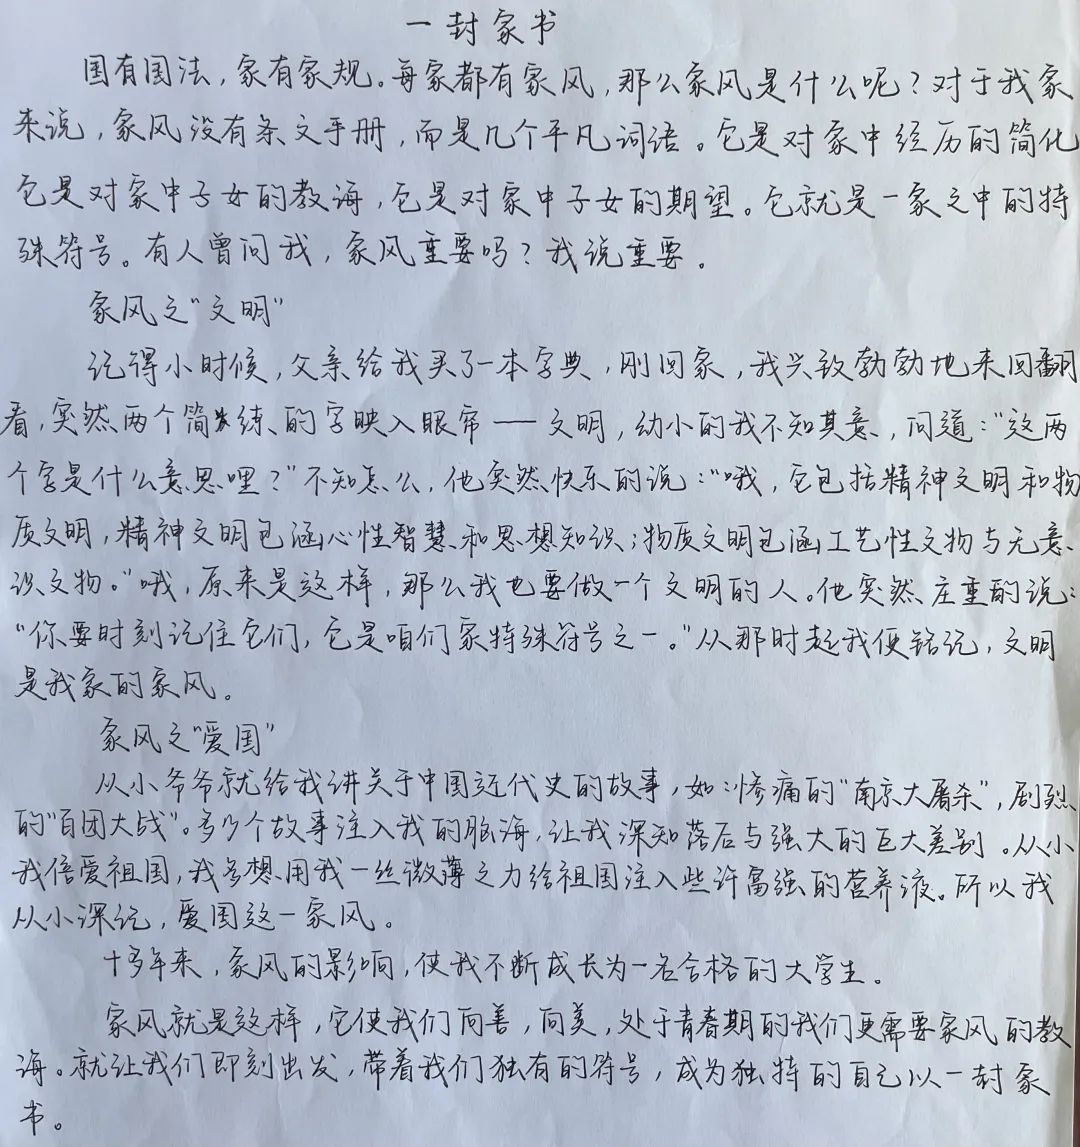 一封家书
国有国法，家有家规。每家都有家风，那么家风是什么呢？对于我家
来说，家风没有条文手册，而是几个平凡词语。它是对家中经历的简化
它是对家中子女的教诲，它是对家中子女的期望。它就是一家之中的特
殊符号。有人曾问我，家风重要吗？我说重要。
家风之“文明”
记得小时候，父亲给我买了一本字典，刚回家，我兴致勃勃地来回翻
看，突然两个简练的字映入眼帘——文明，幼小的我不知其意，问道：“这两
个字是什么意思哩？”不知怎么，他突然快乐的说：“哦，它包括精神文明和物
质文明，精神文明包涵心性智慧和思想知识；物质文明包涵工艺性文物与无意
识文物。”哦，原来是这样，那么我也要做一个文明的人。他突然庄重的说：
“你要时刻记住它们，它是咱们家特殊符号之一。”从那时起我便铭记，文明
是我家的家风。
家风之“爱国”
从小爷爷就给我讲关于中国近代史的故事，如：惨痛的“南京大屠杀”，剧烈
的“百团大战”。多少个故事注入我的脑海，让我深知落后与强大的巨大差别。从小
我倍爱祖国，我多想用我一丝微薄之力给祖国注入些许富强的营养液。所以我
从小深记，爱国这一家风。
十多年来，家风的影响，使我不断成长为一名合格的大学生。
家风就是这样，它使我们向善，向美，处于青春期的我们更需要家风的教
诲。就让我们即刻出发，带着我们独有的符号，成为独特的自己以一封家
书。